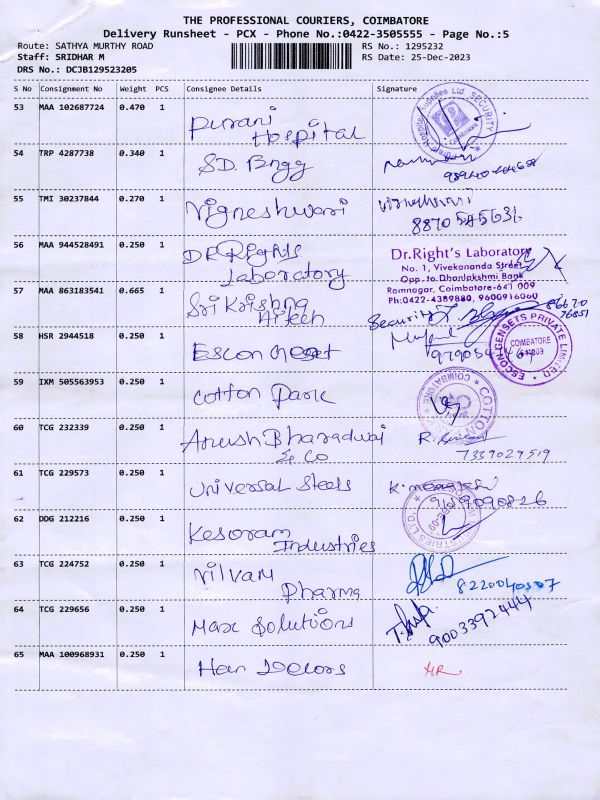 THE PROFESSIONAL COURIERS, COIMBATORE
Delivery Runsheet - PCX - Phone No.:0422-3505555 - Page No.:5
Route: SATHYA MURTHY ROAD
RS No.: 1295232
Staff: SRIDHAR M
RS Date: 25-Dec-2023
DRS No.: DCJB129523205
S No Consignment No Weight PCS Consignee Details Signature
53 MAA 102687724 0.470 1
Purani
Hospital
SECURITY
54 TRP 4287738 0.340 1
S.D. Bngg
55 TMI 30237844 0.270 1
Vigneshwari
8870545631
56 MAA 944528491 0.250 1
DR. Rights
Laboratory
Dr.Right's Laboratory
No. 1, Vivekananda Street
Opp. to Dhanlakshmi Bank
Ramnagar, Coimbatore-641 009
Ph:0422-4389880, 9600916060
57 MAA 863183541 0.665 1
Sri Krishna
Hitech
Security
86670
76851
58 HSR 2944518 0.250 1
Escon
ESCON GENSETS PRIVATE LIMITED
COIMBATORE
59 IXM 505563953 0.250 1
Cotton Park
COTTON
COIMBATORE
60 TCG 232339 0.250 1
Anush Bharadwaj
& Co
7339029519
61 TCG 229573 0.250 1
Universal Steels
9119090826
62 DDG 212216 0.250 1
Kesoram
Industries
63 TCG 224752 0.250 1
Vilvam
Pharma
8220040507
64 TCG 229656 0.250 1
Max Solutions
9003392444
65 MAA 100968931 0.250 1
Hari Decors
HR.